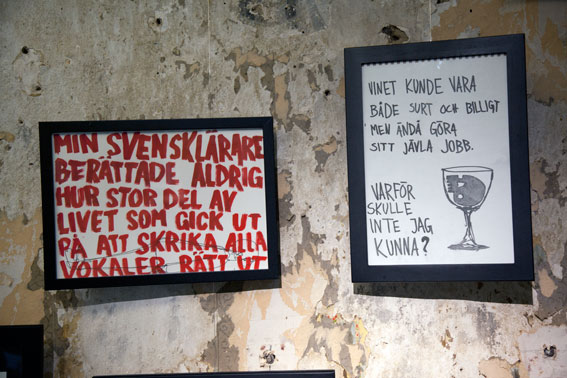 MIN SVENSKLÄRARE
BERÄTTADE ALDRIG
HUR STOR DEL AV
LIVET SOM GICK UT
PÅ ATT SKRIKA ALLA
VOKALER RÄTT UT
VINET KUNDE VARA
BÅDE SURT OCH BILLIGT
MEN ÄNDÅ GÖRA
SITT JÄVLA JOBB.
VARFÖR
SKULLE
INTE JAG
KUNNA?
B